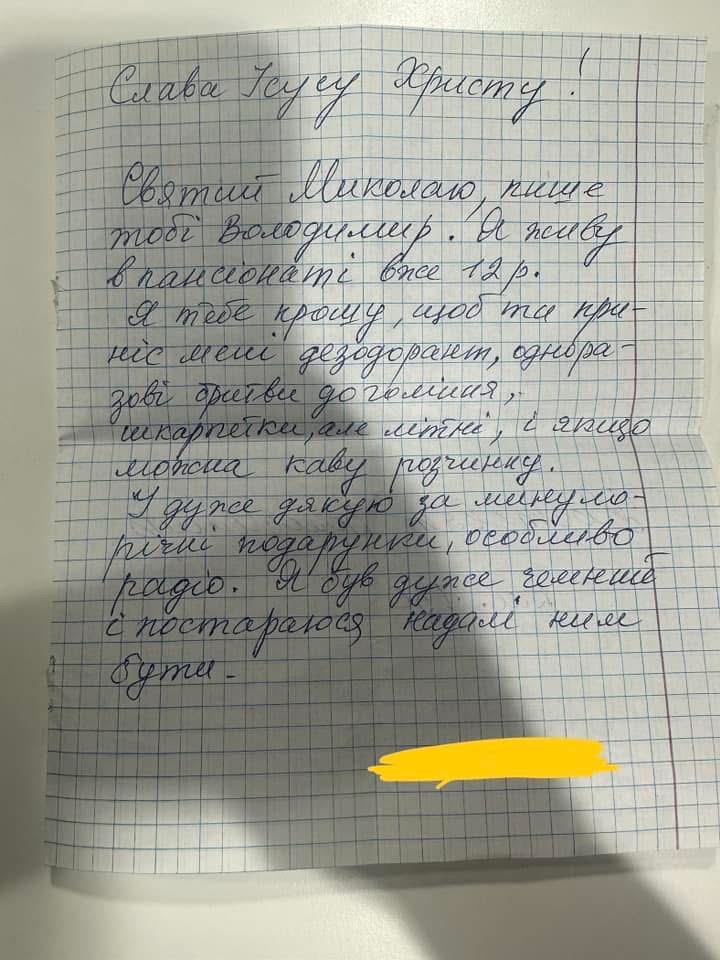 Слава Ісусу Христу!
Святий Миколаю, пише
тобі Володимир. Я живу
в пансіонаті вже 12р.
Я тебе прошу, щоб ти при-
ніс мені дезодорант, однора-
зові бритви до гоління,
шкарпетки, але літні, і якщо
можна каву розчинну.
І дуже дякую за минуло-
річні подарунки, особливо
радіо. Я був дуже чемний
і постараюся надалі ним
бути.